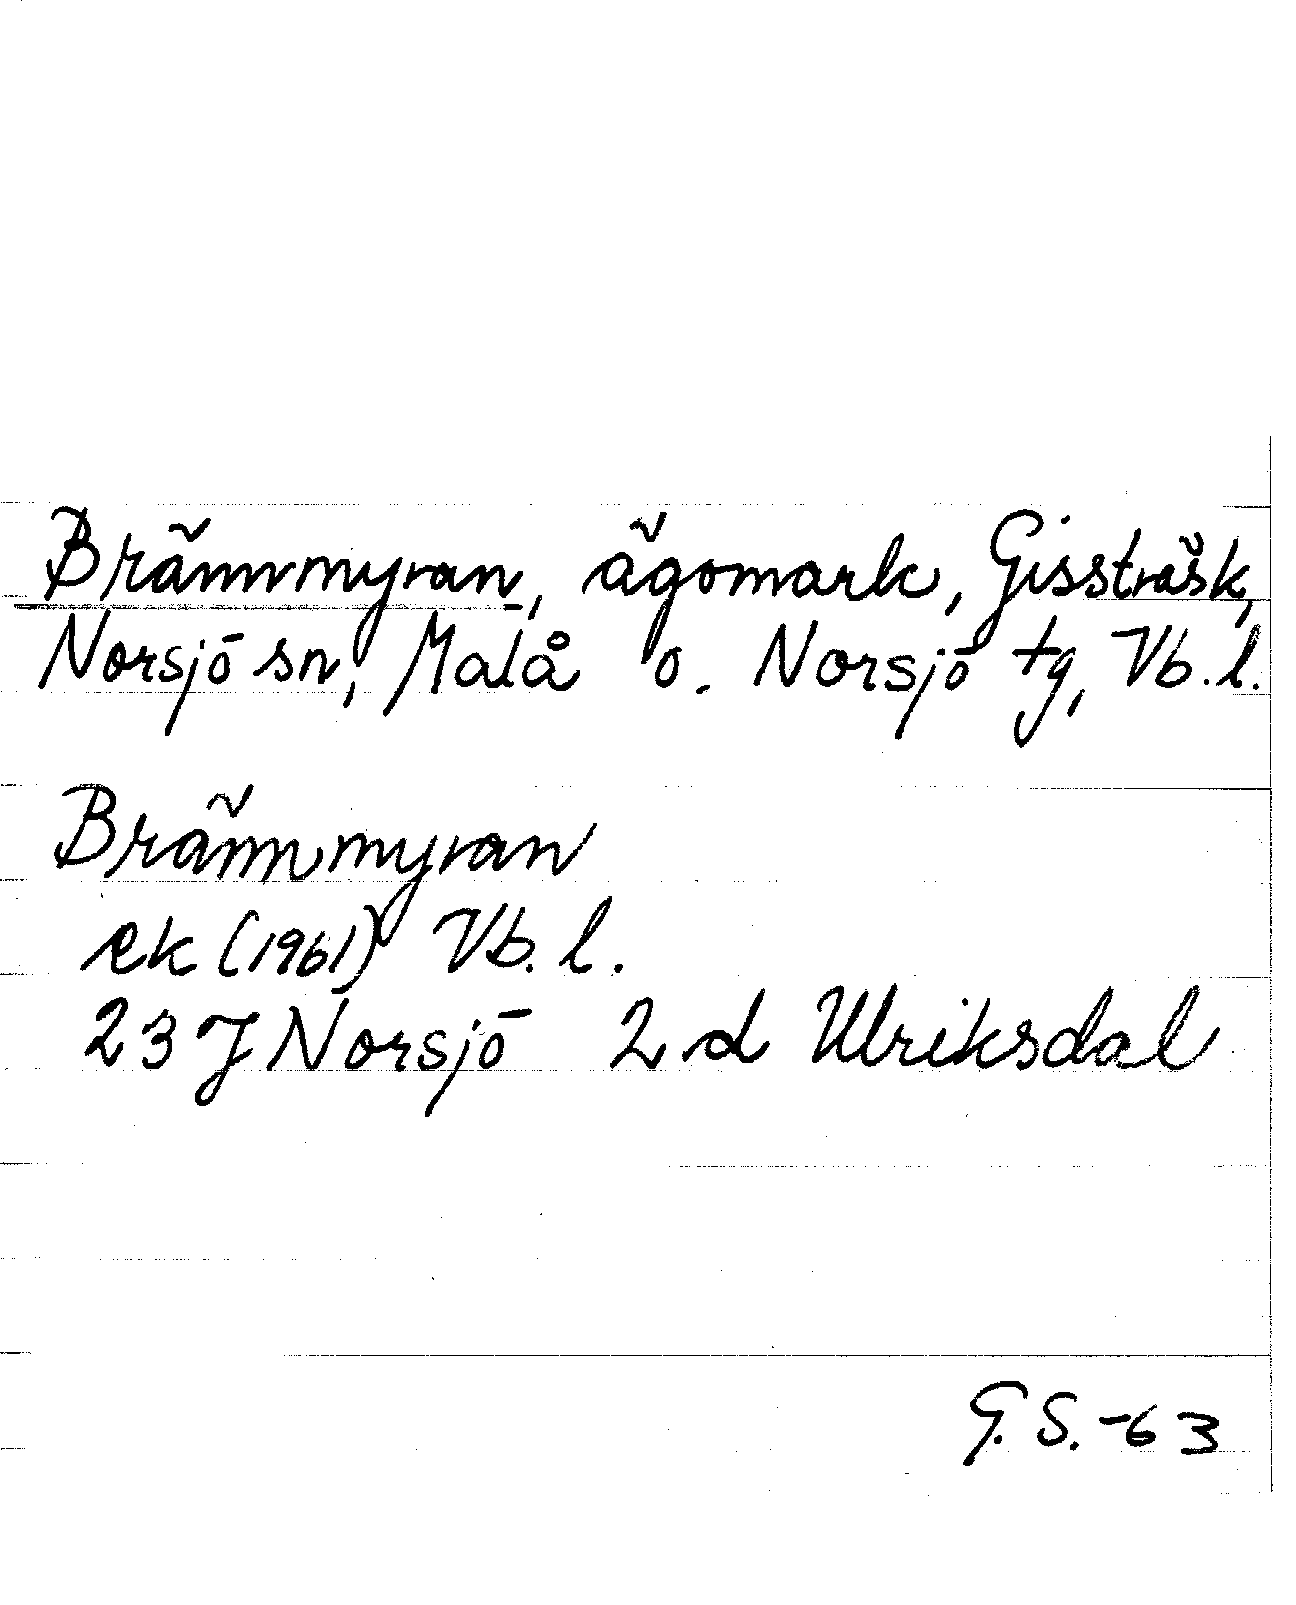 Brännmyran, ägomark, Gissträsk,
Norsjö sn, Malå o. Norsjö tg, Vb. l.
Brännmyran
ek (1961) Vb. l.
23 J Norsjö 2 d Ulriksdal
G. S. -63